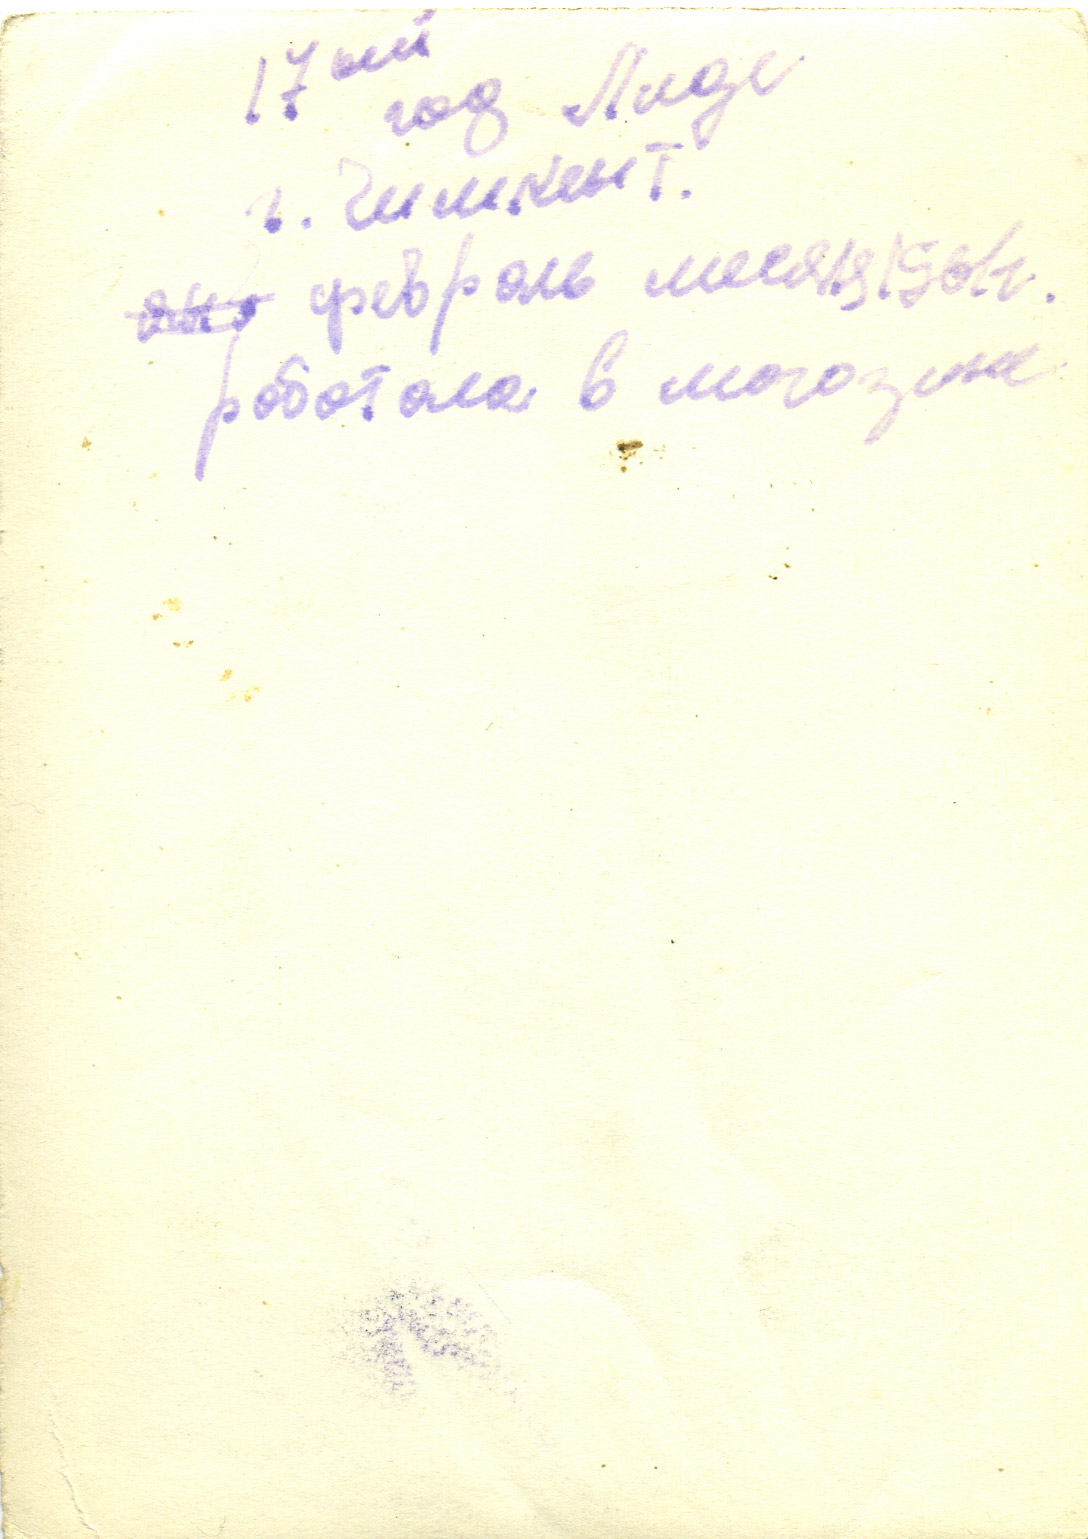 17ый
год Лиде
г. Чимкент.
февраль месяц
роботала в могозине